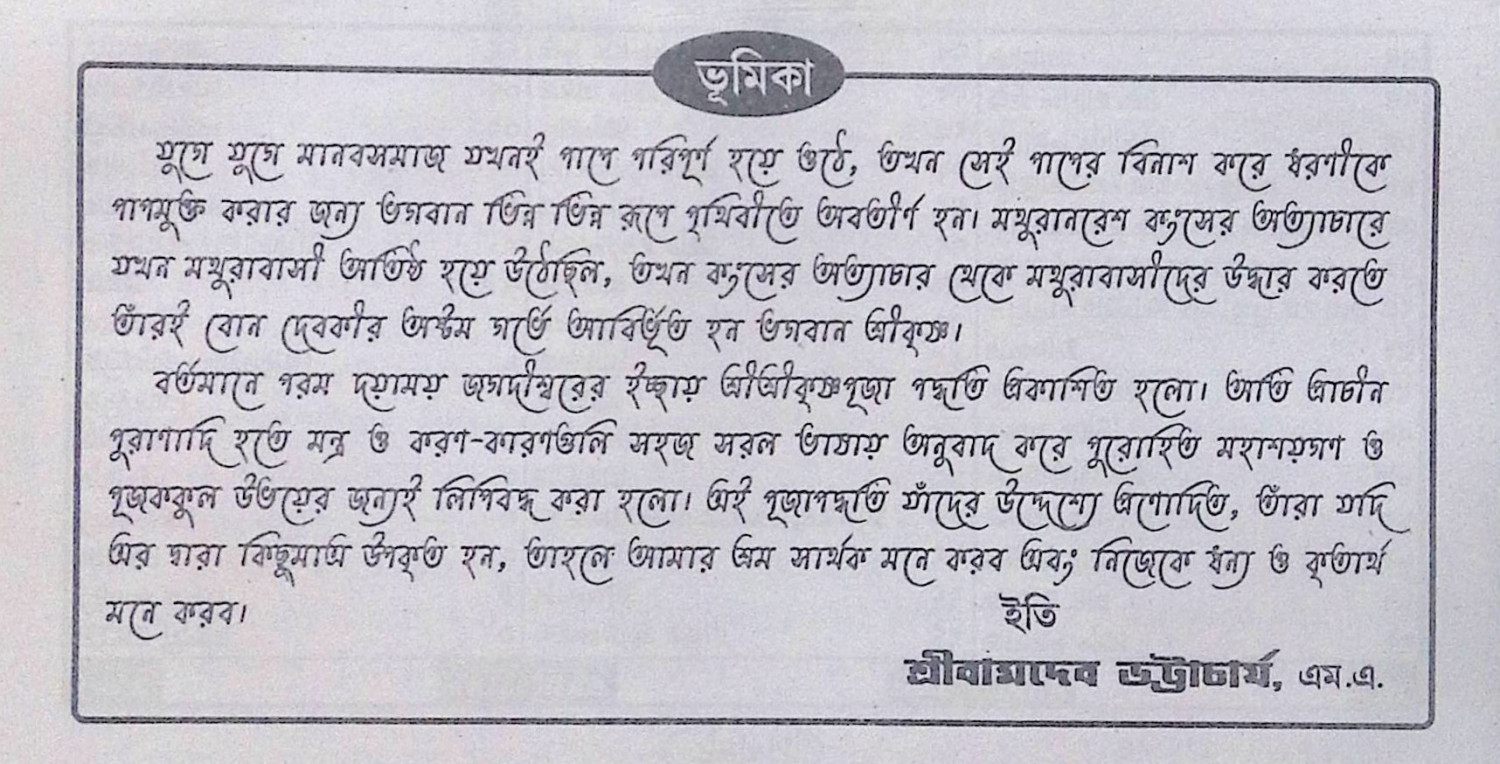 ভূমিকা
যুগে যুগে মানবসমাজ যখনই পাপে পরিপূর্ণ হয়ে ওঠে, তখন সেই পাপের বিনাশ করে ধরণীকে
পাপমুক্ত করার জন্য ভগবান ভিন্ন ভিন্ন রূপে পৃথিবীতে অবতীর্ণ হন। মথুরানরেশ কংসের অত্যাচারে
যখন মথুরাবাসী অতিষ্ঠ হয়ে উঠেছিল, তখন কংসের অত্যাচার থেকে মথুরাবাসীদের উদ্ধার করতে
তাঁরই বোন দেবকীর অষ্টম গর্ভে আবির্ভূত হন ভগবান শ্রীকৃষ্ণ।
বর্তমানে পরম দয়াময় জগদীশ্বরের ইচ্ছায় শ্রীশ্রীকৃষ্ণপূজা পদ্ধতি প্রকাশিত হলো। অতি প্রাচীন
পুরাণাদি হতে মন্ত্র ও করণ-কারণগুলি সহজ সরল ভাষায় অনুবাদ করে পুরোহিত মহাশয়গণ ও
পূজককুল উভয়ের জন্যই লিপিবদ্ধ করা হলো। এই পূজাপদ্ধতি যাঁদের উদ্দেশ্যে প্রণোদিত, তাঁরা যদি
এর দ্বারা কিছুমাত্র উপকৃত হন, তাহলে আমার শ্রম সার্থক মনে করব এবং নিজেকে ধন্য ও কৃতার্থ
মনে করব।
ইতি
শ্রীবামদেব ভট্টাচার্য, এম.এ.